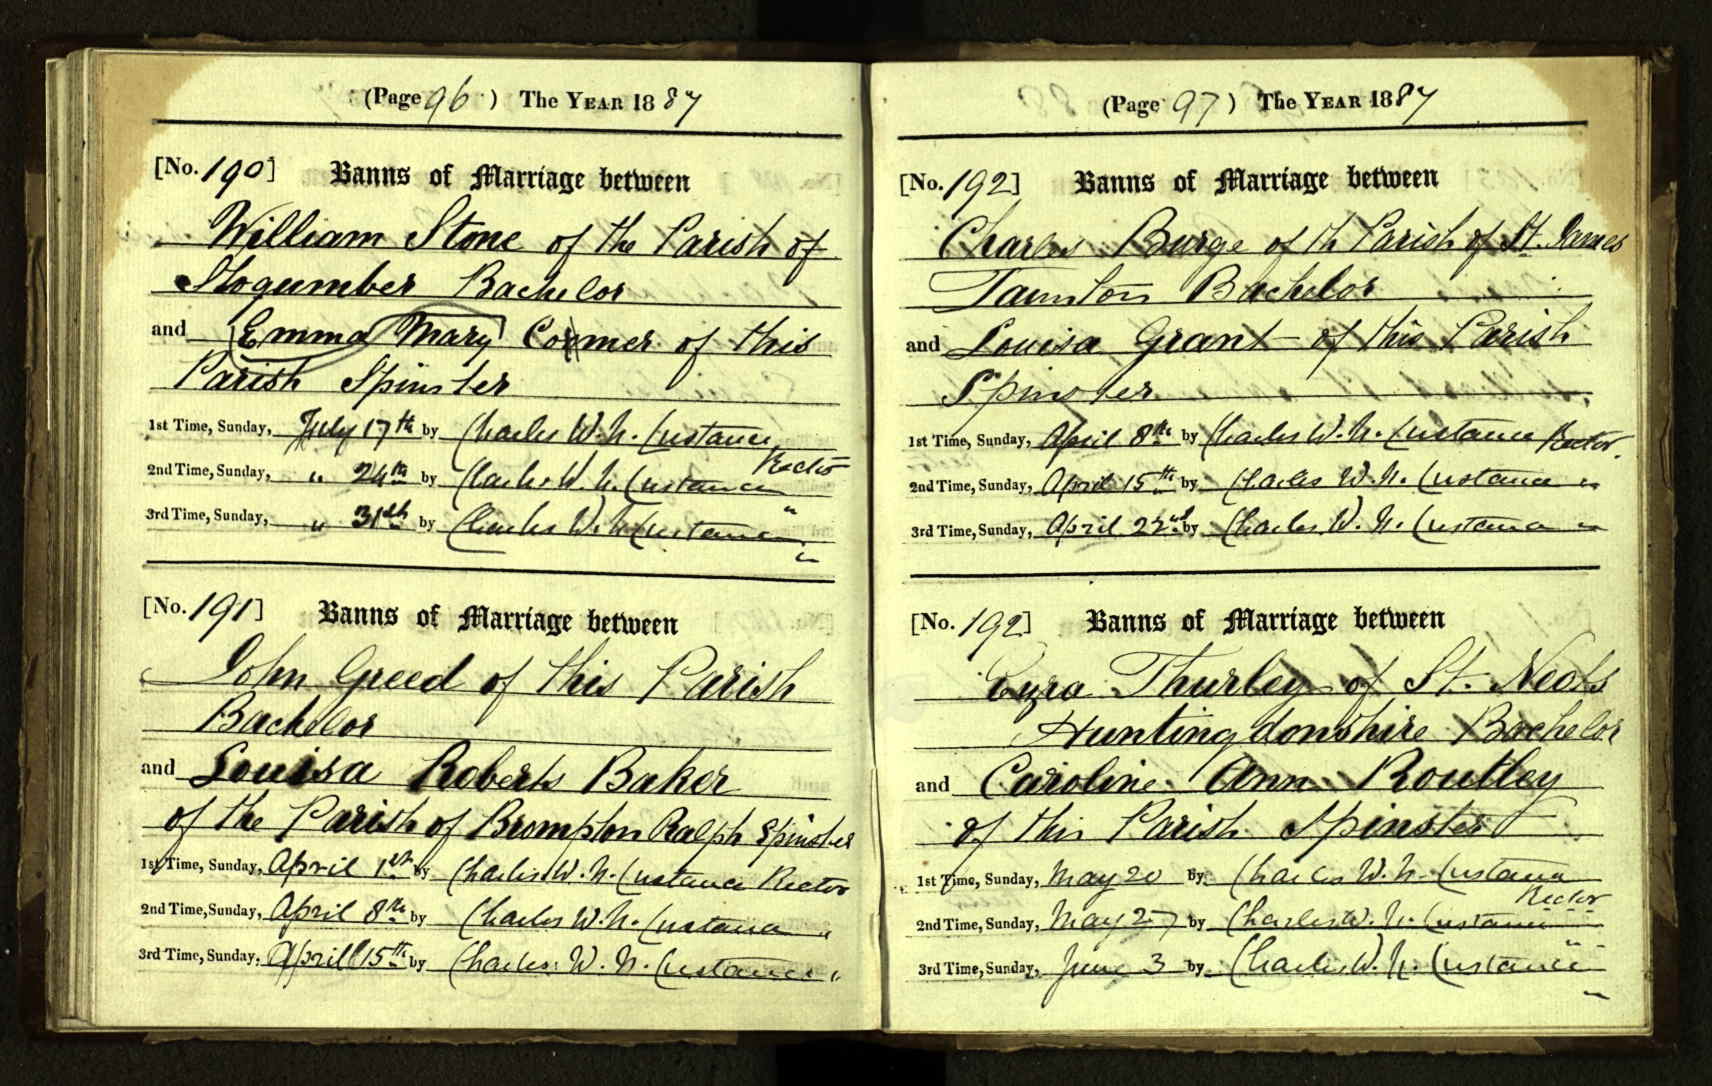 (Page 96) The YEAR 1887
[No. 190] Banns of Marriage between
William Stone of the Parish of
Stogumber Bachelor
and Emma Mary Cormer of this
Parish Spinster
1st Time, Sunday, July 17th by Charles W. N. Custance
Rector
2nd Time, Sunday, " 24th by Charles W. N. Custance
"
3rd Time, Sunday, " 31st by Charles W. N. Custance
"
[No. 191] Banns of Marriage between
John Greed of this Parish
Bachelor
and Louisa Roberts Baker
of the Parish of Brompton Ralph Spinster
1st Time, Sunday, April 1st by Charles W. N. Custance Rector
2nd Time, Sunday, April 8th by Charles W. N. Custance "
3rd Time, Sunday, April 15th by Charles W. N. Custance "
(Page 97) The YEAR 1887
[No. 192] Banns of Marriage between
Charles Burge of the Parish of St. James
Taunton Bachelor
and Louisa Grant of this Parish
Spinster
1st Time, Sunday, April 8th by Charles W. N. Custance Rector.
2nd Time, Sunday, April 15th by Charles W. N. Custance "
3rd Time, Sunday, April 22nd by Charles W. N. Custance "
[No. 192] Banns of Marriage between
Ezra Thurley of St. Neots
Huntingdonshire Bachelor
and Caroline Ann Routley
of this Parish Spinster
1st Time, Sunday, May 20 by Charles W. N. Custance
Rector
2nd Time, Sunday, May 27 by Charles W. N. Custance
"
3rd Time, Sunday, June 3 by Charles W. N. Custance
"